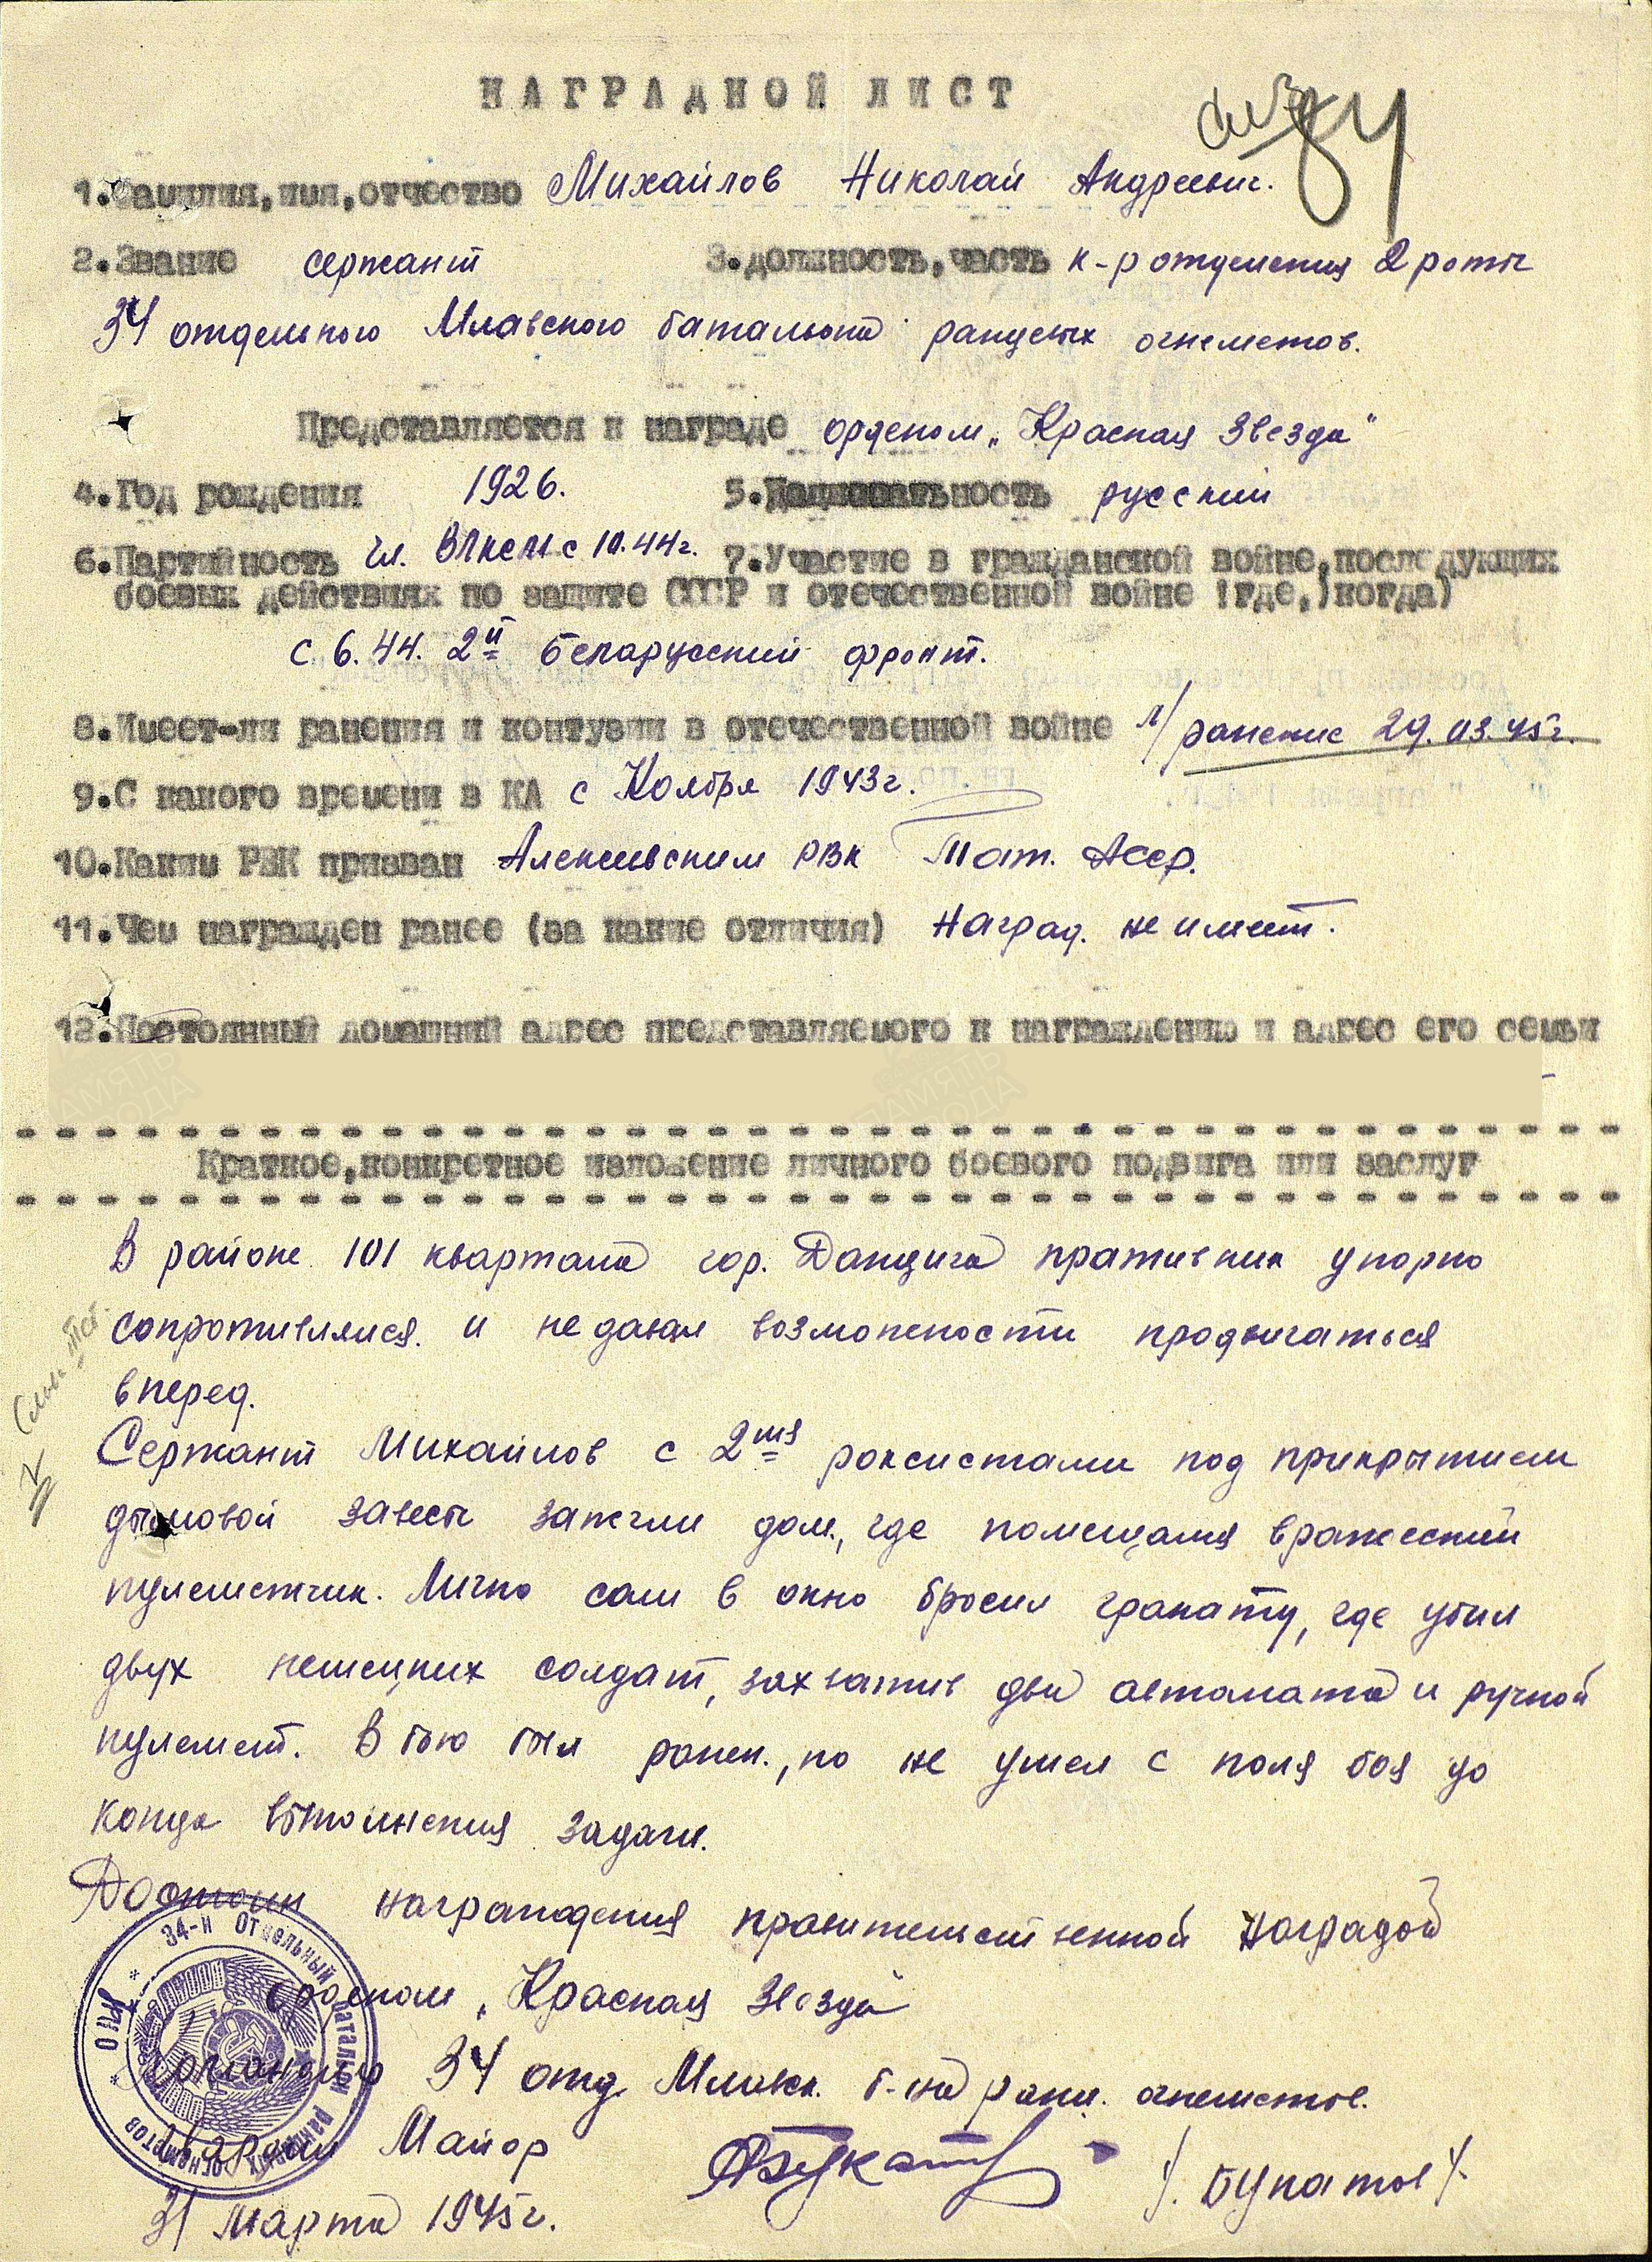 НАГРАДНОЙ ЛИСТ
84
1.Фамилия,имя,отчество Михайлов Николай Андреевич.
2.Звание сержант 3.должность,часть к-р отделения 2 роты
34 отдельного Млавского батальона ранцевых огнеметов.
Представляется к награде орденом „Красная Звезда"
4.Год рождения 1926. 5.Национальность русский
6.Партийность чл. ВЛКСМ с 10.44г. 7.Участие в гражданской войне,последующих
боевых действиях по защите СССР и отечественной войне (где,)когда)
с 6.44. 2й Беларусский фронт.
8.Имеет-ли ранения и контузии в отечественной войне л/ранение 29.03.45г.
9.С какого времени в КА с Ноября 1943г.
10.Каким РВК призван Алексеевским РВК Тат. АССР.
11.Чем награжден ранее (за какие отличия) Наград. не имеет.
12.Постоянный домашний адрес представляемого к награждению и адрес его семьи
ПАМЯТЬ НАРОДА ПАМЯТЬ НАРОДА
Краткое,конкретное изложение личного боевого подвига или заслуг
В районе 101 квартала гор. Данцига пративник упорно
сопротивлялся. и не давал возможности продвигаться
вперед.
Сержант Михайлов с 2мя роксистами под прикрытием
дымовой завесы зажгли дом, где помещался вражеский
пулеметчик. Лично сам в окно бросил гранату, где убил
двух немецких солдат, захватив два автомата и ручной
пулемет. В бою был ранен., но не ушел с поля боя до
конца выполнения задачи.
Достоин награждения правительственной наградой
орденом „Красная Звезда
Командир 34 отд. Млавск. б-на ранц. огнеметов.
Гвардии Майор /.Букатов/.
31 Марта 1945г.
34-й Отдельный батальон ранцевых огнеметов * НКО *